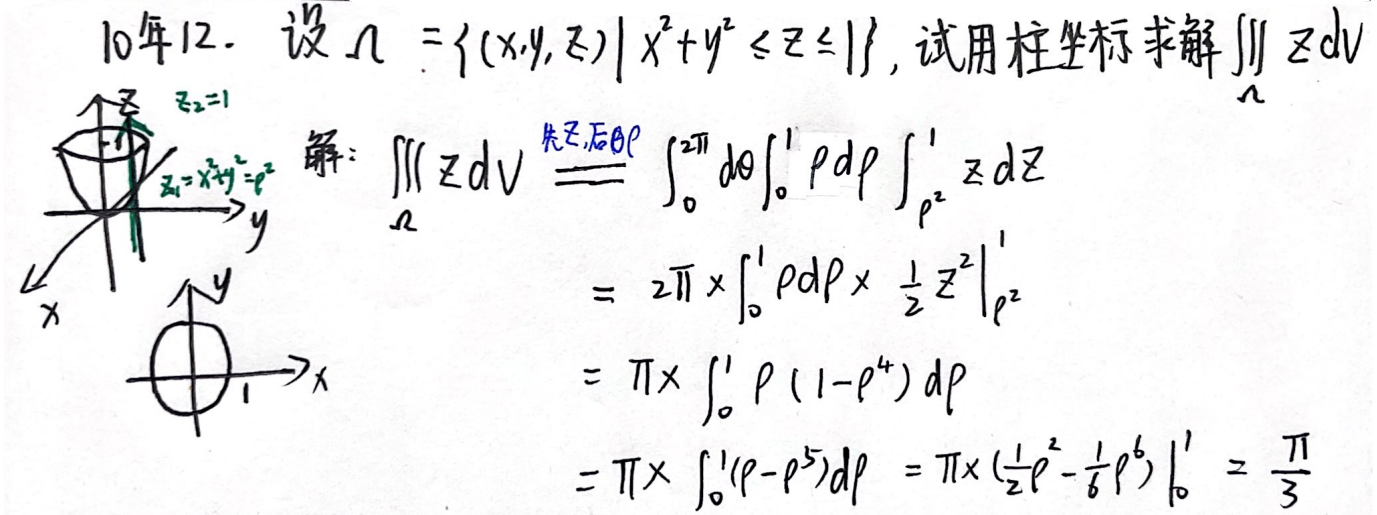 10年12. 设Ω = {(x,y,z)| x²+y² ≤ z ≤ 1}, 试用柱坐标求解∭_Ω z dv
z
z₂=1
z₁=x²+y²=ρ²
y
x
解: ∭_Ω z dv =(先z,后θρ)= ∫₀^{2π} dθ ∫₀^1 ρdρ ∫_{ρ²}^1 z dz
= 2π × ∫₀^1 ρdρ × ½ z² |_{ρ²}^1
y
x
1
= π× ∫₀^1 ρ (1-ρ⁴) dρ
= π× ∫₀^1 (ρ-ρ⁵)dρ = π× (½ρ² - ⅙ρ⁶) |₀^1 = π/3